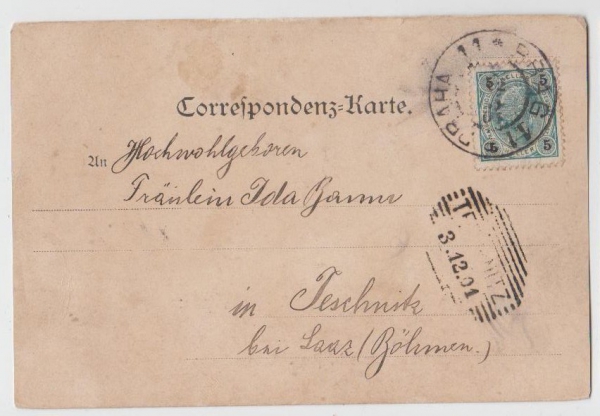 Correspondenz-Karte.
PRAHA 11 * PRAG 11
5 5
5 5
An Hochwohlgeboren
Fräulein Ida
3.12.01
in Teschnitz
bei Saaz (Böhmen.)